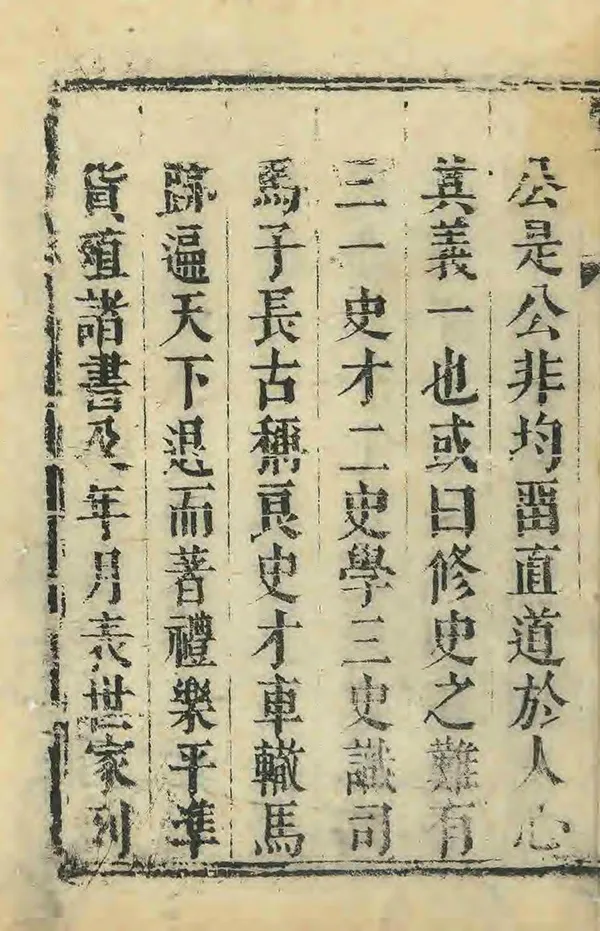 公是公非均畱直道於人心
其義一也或曰修史之難有
三一史才二史學三史識司
馬子長古稱良史才車轍馬
跡遍天下退而著禮樂平準
貨殖諸書及年月表世家列